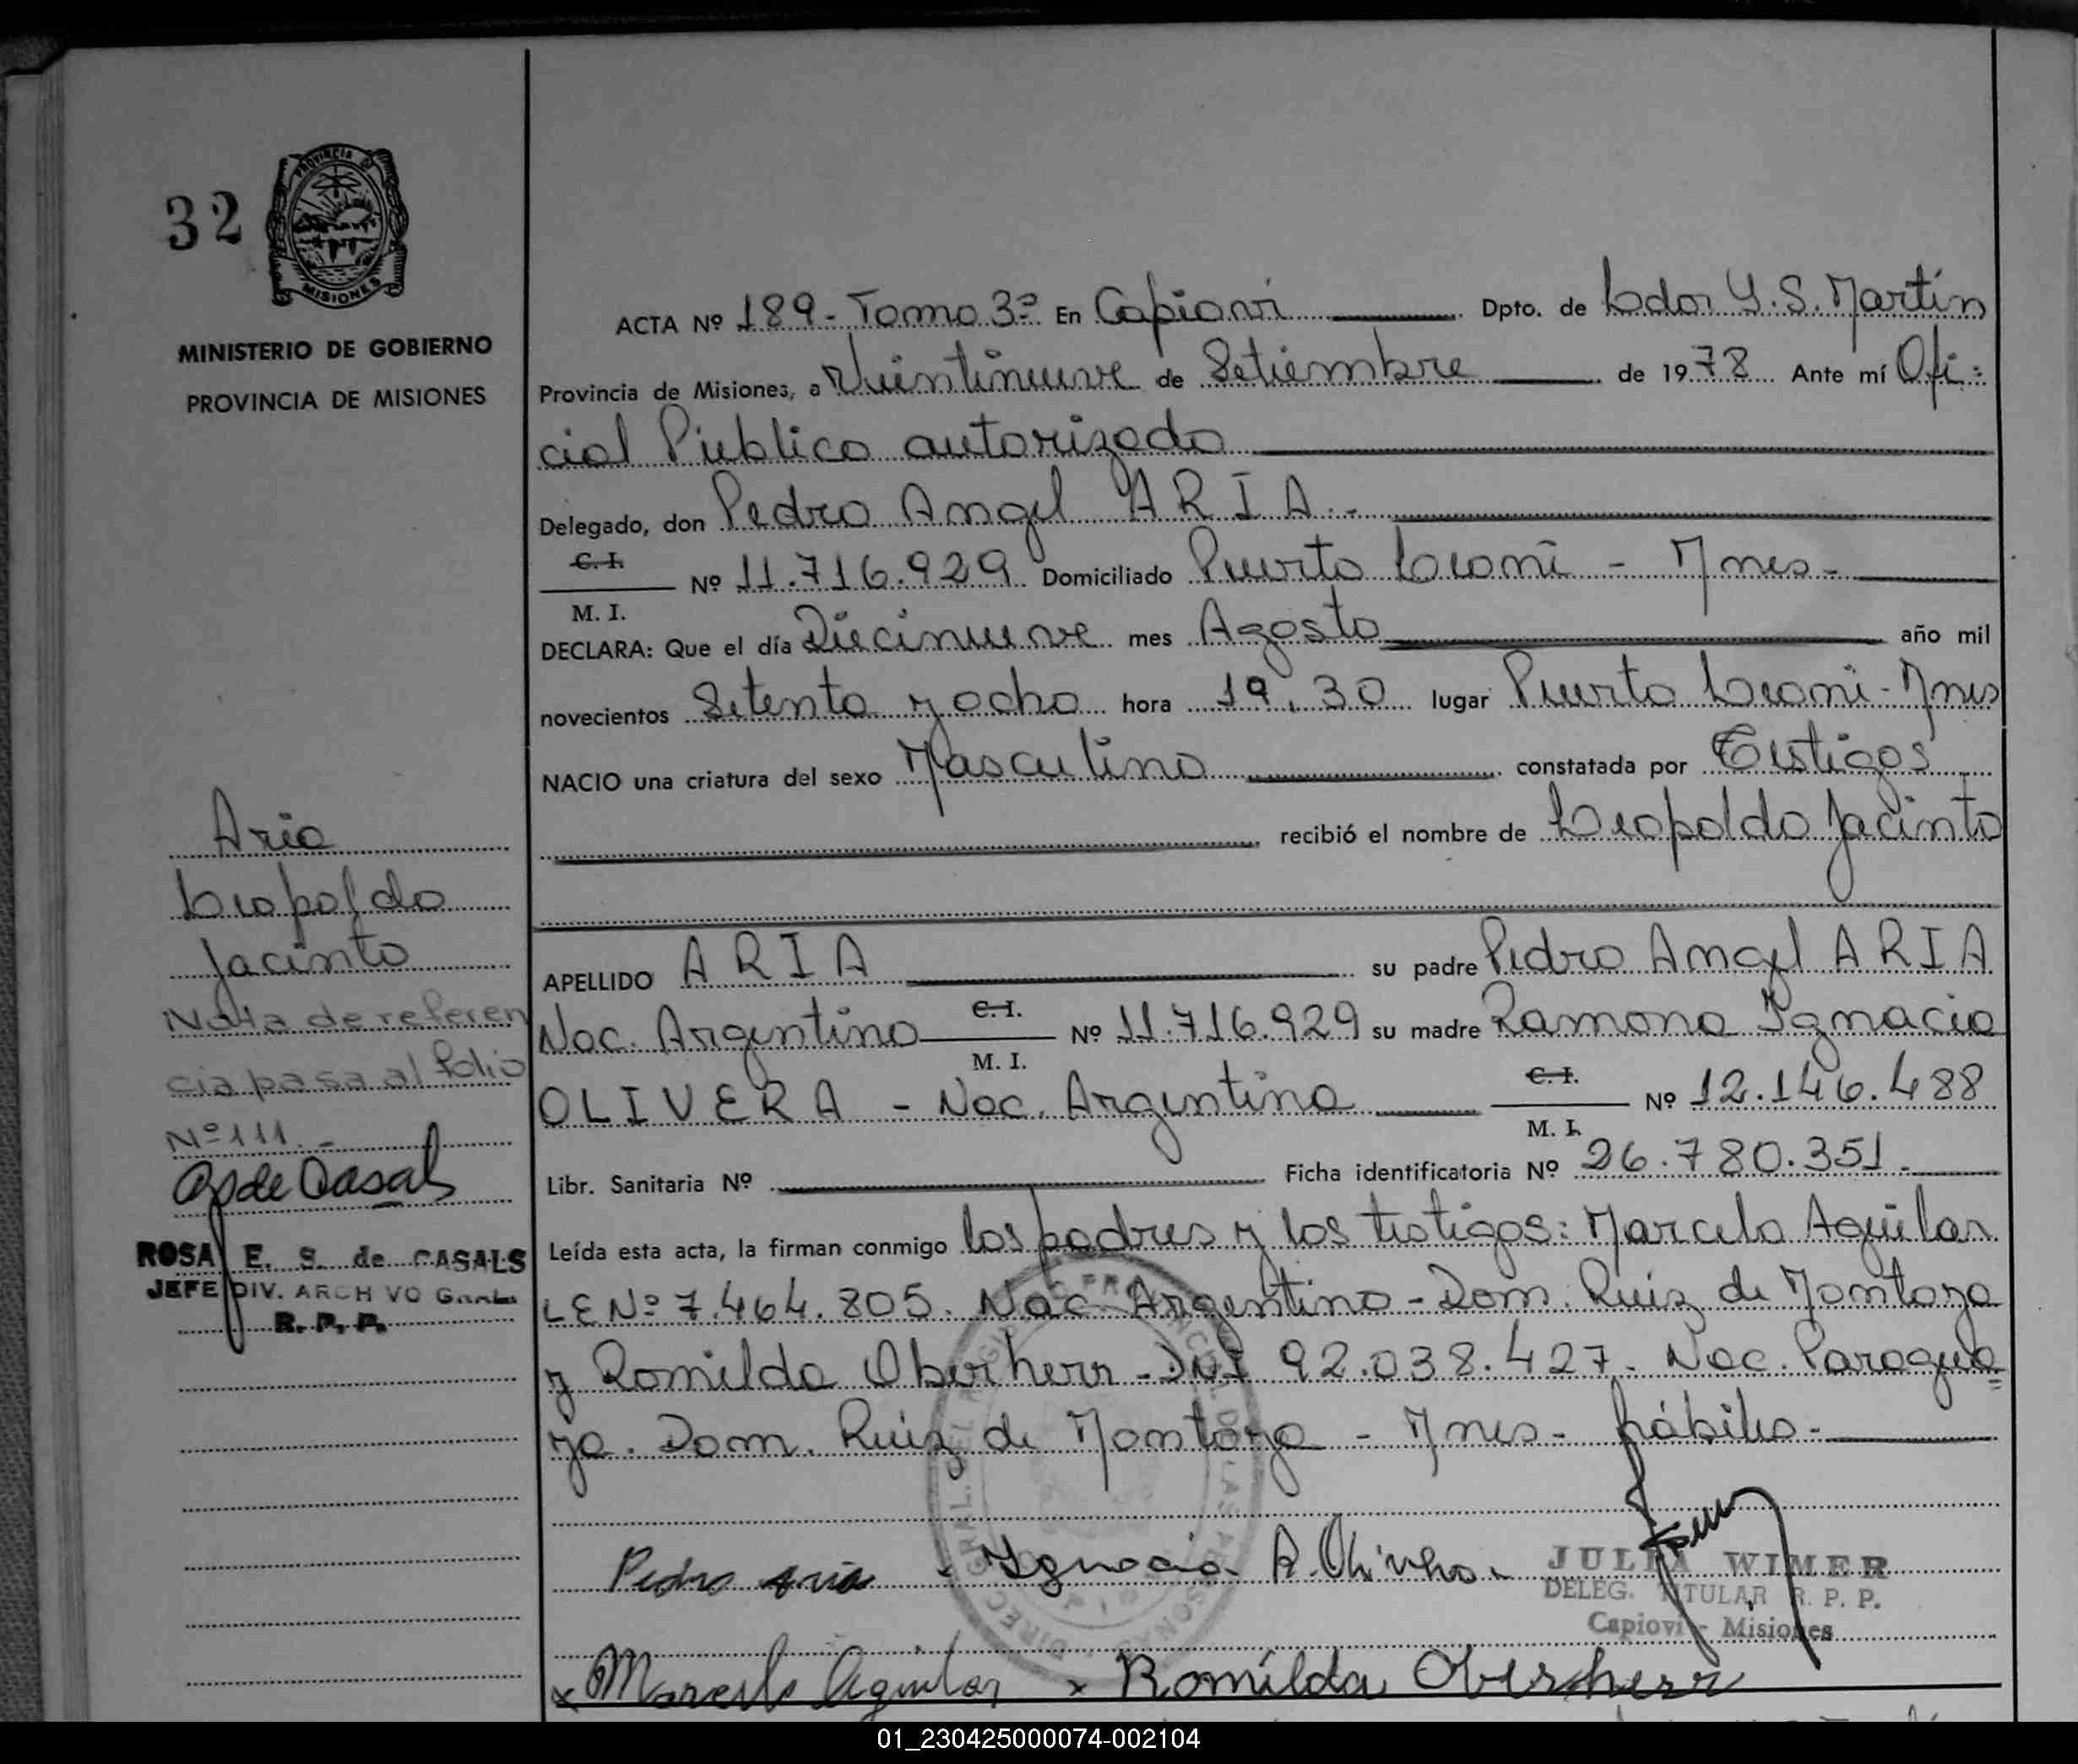 32
PROVINCIA DE
MISIONES
MINISTERIO DE GOBIERNO
PROVINCIA DE MISIONES
ACTA Nº 189 - Tomo 3º En Capioví Dpto. de Ldor G. S. Martín
Provincia de Misiones, a Veintinueve de Setiembre de 1978 Ante mí Ofi=
cial Público autorizado
Delegado, don Pedro Angel ARIA.-
C. I.
M. I. Nº 11.716.929 Domiciliado Puerto Leoni - Mnes-
DECLARA: Que el día Diecinueve mes Agosto año mil
novecientos Setenta y ocho hora 19,30 lugar Puerto Leoni - Mnes
NACIO una criatura del sexo Masculino constatada por Testigos
recibió el nombre de Leopoldo Jacinto
APELLIDO ARIA su padre Pedro Angel ARIA
Nac. Argentino C. I. M. I. Nº 11.716.929 su madre Ramona Ignacia
OLIVERA - Nac. Argentina C. I. M. I. Nº 12.146.488
Libr. Sanitaria Nº Ficha identificatoria Nº 26.780.351.-
Leída esta acta, la firman conmigo los padres y los testigos: Marcelo Aguilar
LE Nº 7.464.805. Nac. Argentino - Dom. Ruiz de Montoya
y Romilda Oberherr - DNI 92.038.427- Nac. Paragua=
ya. Dom. Ruiz de Montoya - Mnes- hábiles-
Pedro Aria - Ignacia R. Olivera
JULIA WIMER
DELEG. TITULAR R. P. P.
Capioví - Misiones
x Marcelo Aguilar x Romilda Oberherr
Aria
Leopoldo
Jacinto
Nota de referen
cia pasa al folio
Nº 111.-
R de Casals
ROSA E. S. de CASALS
JEFE DIV. ARCHIVO Gral.
R. P. P.
01_230425000074-002104